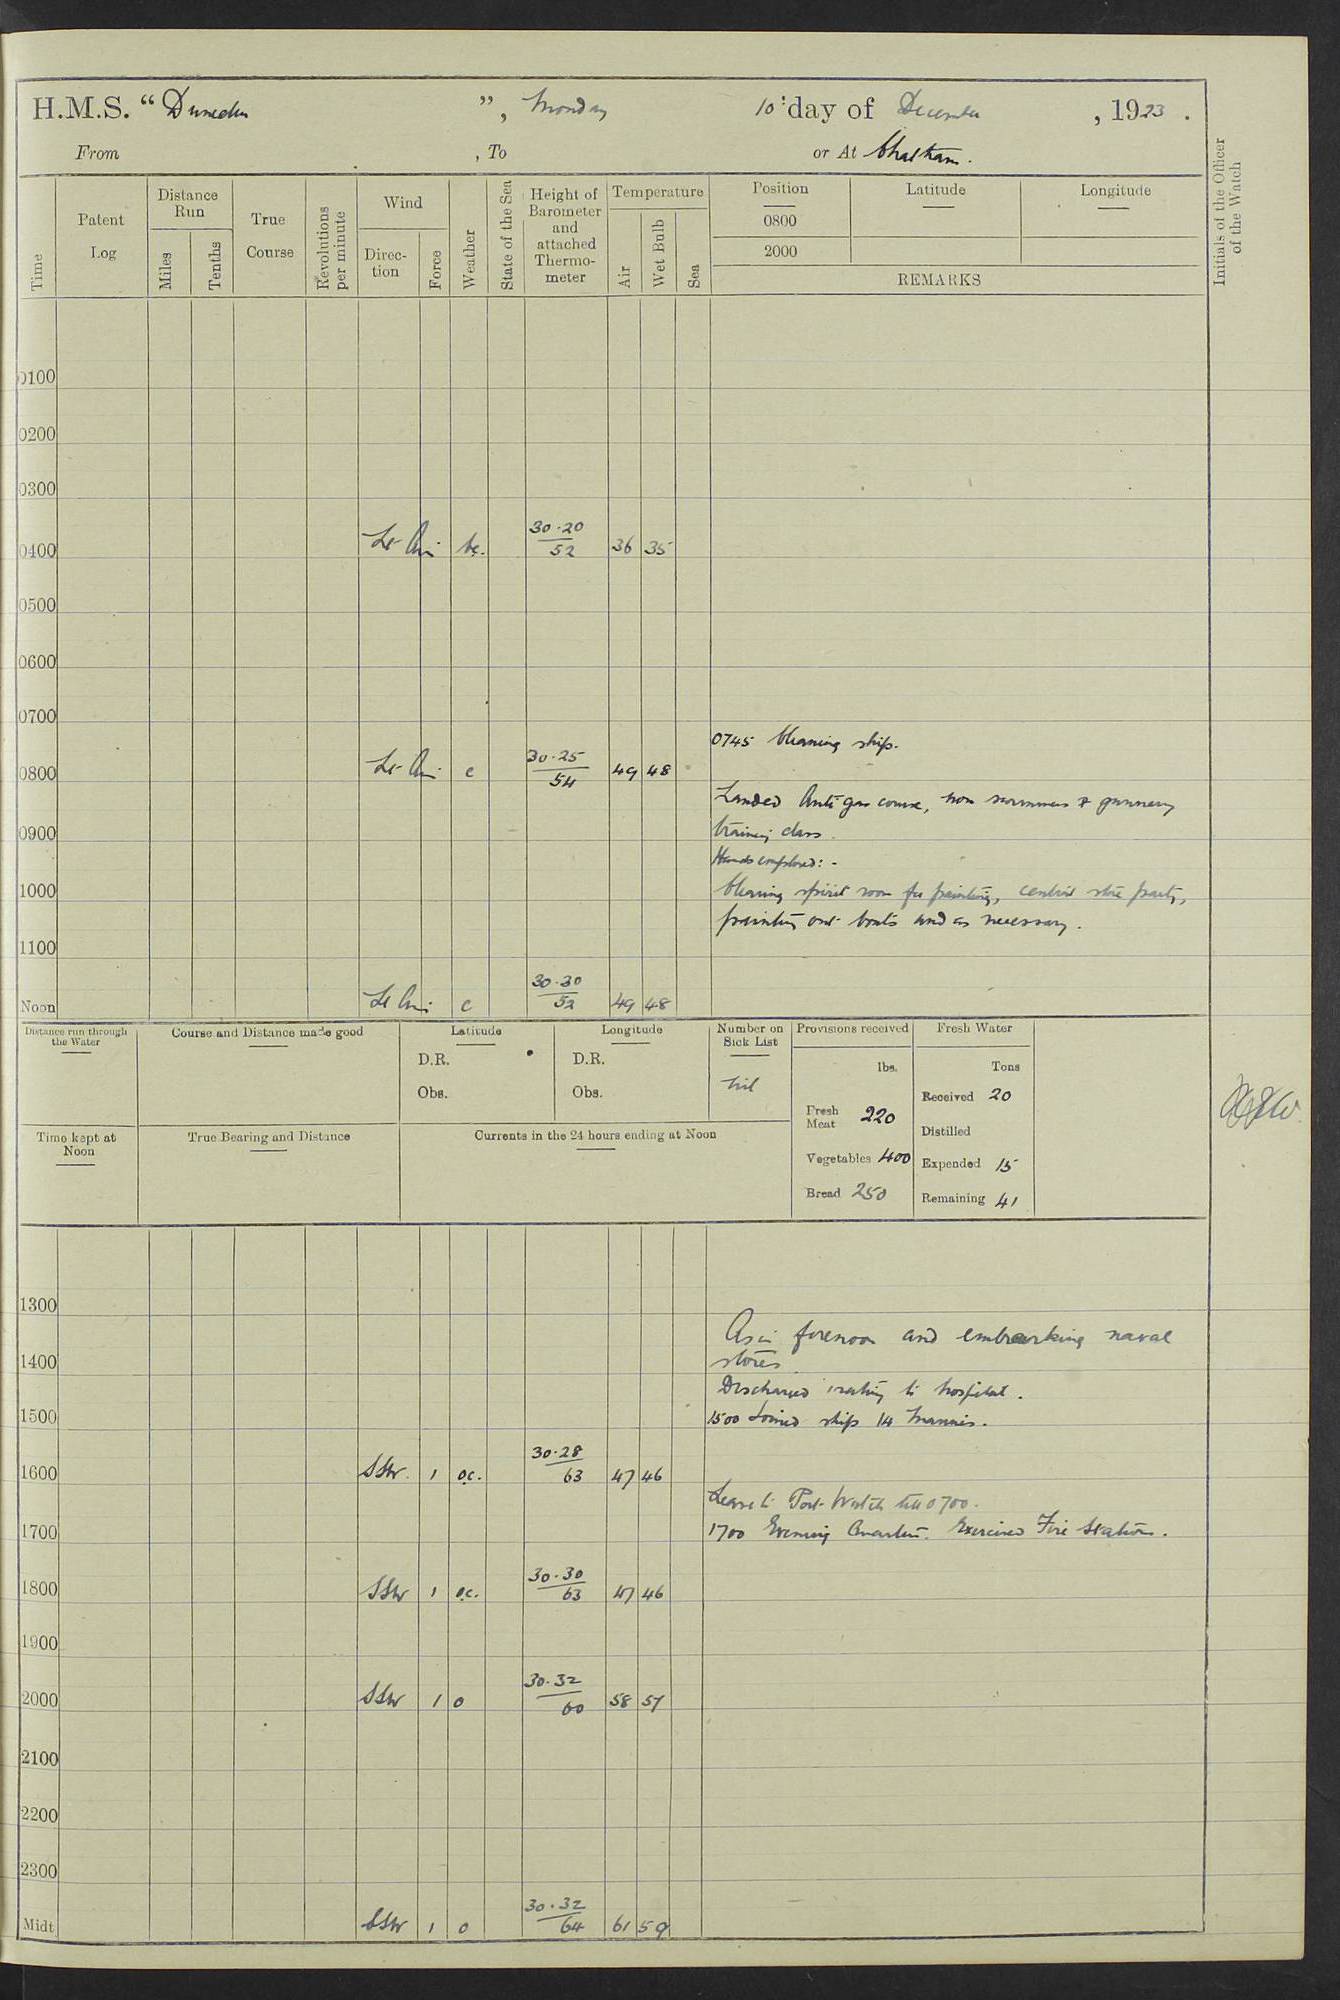 H.M.S. " Dunedin ", Monday 10th day of December, 1923.
From , To or At Chatham.
Time Patent Log Distance Run Miles Tenths True Course Revolutions per minute Wind Direction Force Weather State of the Sea Height of Barometer and attached Thermometer Temperature Air Wet Bulb Sea Position Latitude Longitude
0800
2000
REMARKS
Initials of the Officer of the Watch
0100
0200
0300
0400 Lt Air bc. 30.20/52 36 35
0500
0600
0700
0745 Cleaning ship.
0800 Lt Air c 30.25/54 49 48
Landed Anti gas course, non swimmers & gunnery
0900 training class.
Hands employed:-
1000 Cleaning spirit room for painting, central store party,
painting out boats and as necessary.
1100
Noon Lt Air c 30.30/52 49 48
Distance run through the Water Course and Distance made good Latitude Longitude Number on Sick List Provisions received Fresh Water
D.R. D.R. lbs. Tons
Obs. Obs. Nil Received 20
Fresh Meat 220
Distilled
Time kept at Noon True Bearing and Distance Currents in the 24 hours ending at Noon
Vegetables 400 Expended 15
Bread 250 Remaining 41
1300
As in forenoon and embarking naval
1400 stores
Discharged 1 rating to hospital.
1500 1500 Joined ship 14 Marines.
1600 SSW. 1 oc. 30.28/63 47 46
Leave to Port Watch till 0700.
1700 1700 Evening Quarters. Exercised Fire Stations.
1800 SSW 1 oc. 30.30/63 47 46
1900
2000 SSW 1 o 30.32/60 58 57
2100
2200
2300
Midt SSW 1 o 30.32/64 61 59